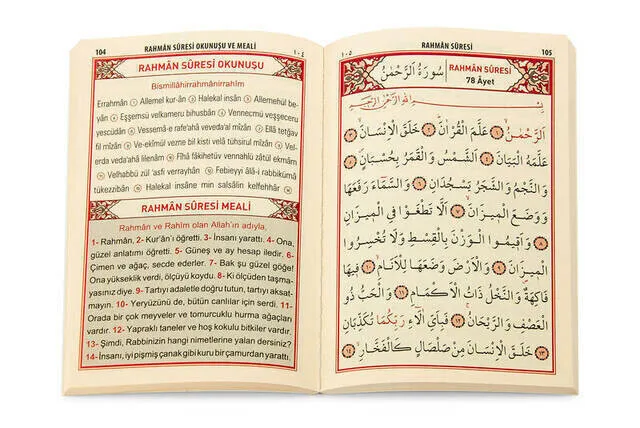 104
RAHMÂN SÛRESİ OKUNUŞU VE MEALİ
١٠٤
RAHMÂN SÛRESİ OKUNUŞU
Bismillâhirrahmânirrahîm
Errahmân ① Allemel kur-ân ② Halekal insân ③ Allemehül be-
yân ④ Eşşemsü velkameru bihusbân ⑤ Vennecmü veşşeceru
yescüdân ⑥ Vessemâ-e rafe'ahâ veveda'al mîzân ⑦ Ellâ tetğav
fil mîzân ⑧ Ve-ekîmül vezne bil kisti velâ tühsirul mîzân ⑨ Vel-
erda veda'ahâ lilenâm ⑩ Fîhâ fâkihetüv vennahlü zâtül ekmâm
⑪ Velhabbü zül 'asfi verrayhân ⑫ Febieyyi âlâ-i rabbikümâ
tükezzibân ⑬ Halekal insâne min salsâlin kelfehhâr ⑭
RAHMÂN SÛRESİ MEALİ
Rahmân ve Rahîm olan Allah'ın adıyla,
1- Rahmân, 2- Kur'ân'ı öğretti. 3- İnsanı yarattı. 4- Ona,
güzel anlatımı öğretti. 5- Güneş ve ay hesap iledir. 6-
Çimen ve ağaç, secde ederler. 7- Bak şu güzel göğe!
Ona yükseklik verdi, ölçüyü koydu. 8- Ki ölçüden taşma-
yasınız diye. 9- Tartıyı adaletle doğru tutun, tartıyı aksat-
mayın. 10- Yeryüzünü de, bütün canlılar için serdi. 11-
Orada bir çok meyveler ve tomurcuklu hurma ağaçları
vardır. 12- Yapraklı taneler ve hoş kokulu bitkiler vardır.
13- Şimdi, Rabbinizin hangi nimetlerine yalan dersiniz?
14- İnsanı, iyi pişmiş çanak gibi kuru bir çamurdan yarattı.
١٠٥
RAHMÂN SÛRESİ
105
سُورَةُ اَلرَّحْمٰنُ
RAHMÂN SÛRESİ
78 Âyet
بِسْمِ اللّٰهِ الرَّحْمٰنِ الرَّحِيمِ
اَلرَّحْمٰنُ ﴿١﴾ عَلَّمَ الْقُرْاٰنَ ﴿٢﴾ خَلَقَ الْاِنْسَانَ ﴿٣﴾
عَلَّمَهُ الْبَيَانَ ﴿٤﴾ اَلشَّمْسُ وَالْقَمَرُ بِحُسْبَانٍ ﴿٥﴾
وَالنَّجْمُ وَالشَّجَرُ يَسْجُدَانِ ﴿٦﴾ وَالسَّمَٓاءَ رَفَعَهَا
وَوَضَعَ الْمِيزَانَ ﴿٧﴾ اَلَّا تَطْغَوْا فِي الْمِيزَانِ
﴿٨﴾ وَاَقِيمُوا الْوَزْنَ بِالْقِسْطِ وَلَا تُخْسِرُوا
الْمِيزَانَ ﴿٩﴾ وَالْاَرْضَ وَضَعَهَا لِلْاَنَامِ ﴿١٠﴾ فِيهَا
فَاكِهَةٌ وَالنَّخْلُ ذَاتُ الْاَكْمَامِ ﴿١١﴾ وَالْحَبُّ ذُو
الْعَصْفِ وَالرَّيْحَانُ ﴿١٢﴾ فَبِاَيِّ اٰلَٓاءِ رَبِّكُمَا تُكَذِّبَانِ
﴿١٣﴾ خَلَقَ الْاِنْسَانَ مِنْ صَلْصَالٍ كَالْفَخَّارِ ﴿١٤﴾